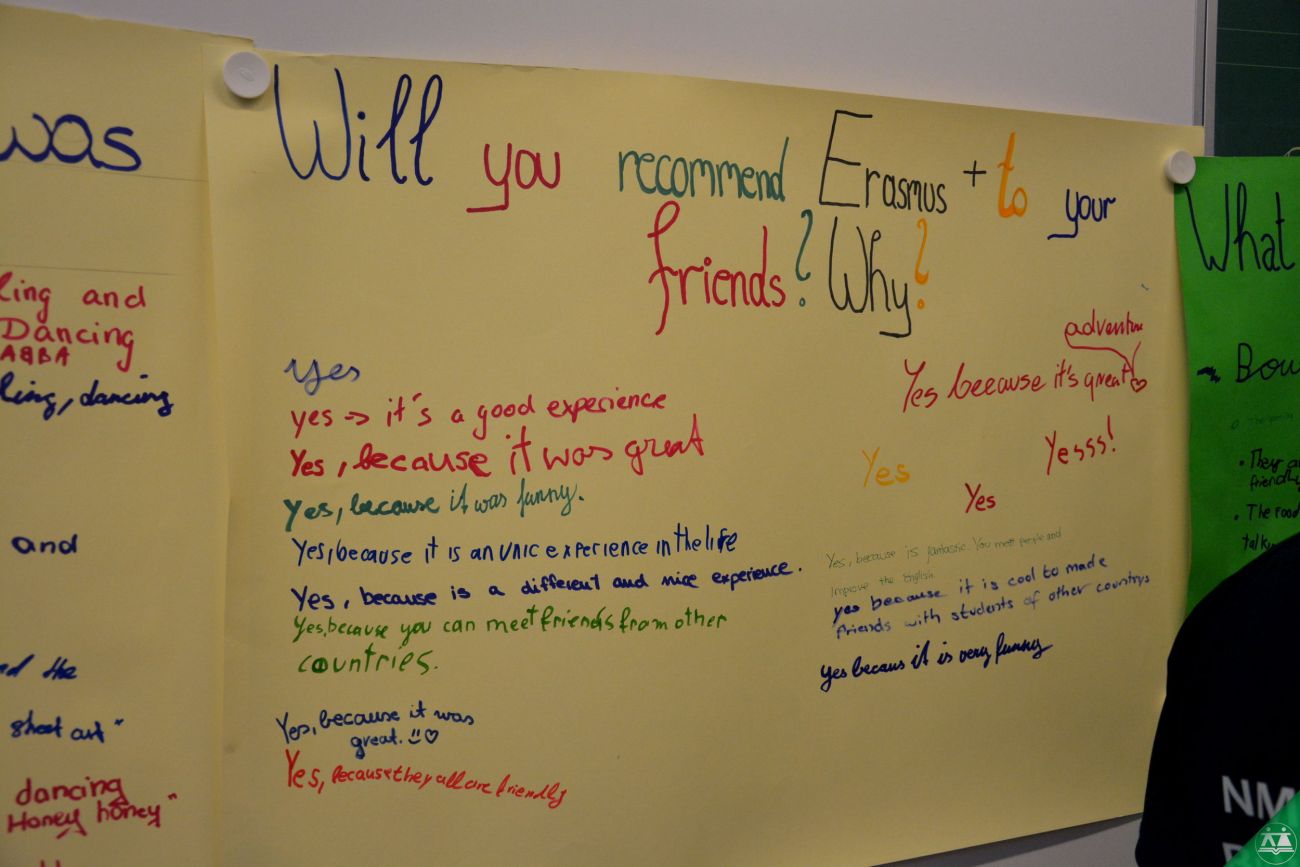 was
ling and
Dancing
ABBA
ling, dancing
and
and the
dancing
Honey honey"
Will you recommend Erasmus + to your
friends? Why?
yes
yes → it's a good experience
Yes, because it was great
Yes, because it was funny.
Yes, because it is an unic experience in the life
Yes, because is a different and nice experience.
Yes, because you can meet friends from other
countries.
Yes, because it was
great. ü♡
Yes, because they all are friendly
adventure
Yes because it's great ♡
Yes
Yesss!
Yes
Yes, because is fantastic. You meet people and
improve the English
yes because it is cool to made
friends with students of other countrys
yes becaus it is very funny
What
Bow
• They a
friendly
• The food
talk
NM